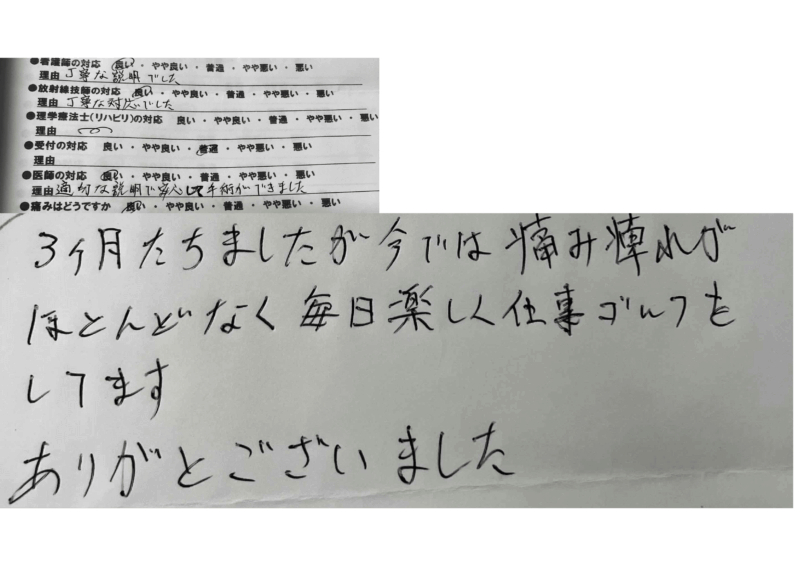 ●看護師の対応 良い・やや良い・普通・やや悪い・悪い
理由 丁寧な説明でした
●放射線技師の対応 良い・やや良い・普通・やや悪い・悪い
理由 丁寧な対応でした
●理学療法士(リハビリ)の対応 良い・やや良い・普通・やや悪い・悪い
理由
●受付の対応 良い・やや良い・普通・やや悪い・悪い
理由
●医師の対応 良い・やや良い・普通・やや悪い・悪い
理由 適切な説明で安心して手術ができました
●痛みはどうですか 良い・やや良い・普通・やや悪い・悪い
3ヶ月たちましたが今では痛み痺れが
ほとんどなく毎日楽しく仕事ゴルフを
してます
ありがとございました